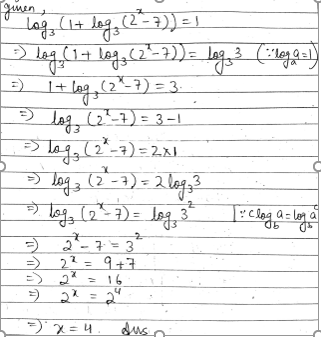 given,
log₃(1+ log₃(2ˣ-7)) = 1
=) log₃(1+ log₃(2ˣ-7)) = log₃3 (∵logₐa=1)
=) 1+ log₃(2ˣ-7) = 3
=) log₃(2ˣ-7) = 3-1
=) log₃(2ˣ-7) = 2×1
=) log₃(2ˣ-7) = 2 log₃3
=) log₃(2ˣ-7) = log₃3² [∵ c log_b a = log_b aᶜ
=) 2ˣ-7 = 3²
=) 2ˣ = 9+7
=) 2ˣ = 16
=) 2ˣ = 2⁴
=) x = 4 Ans